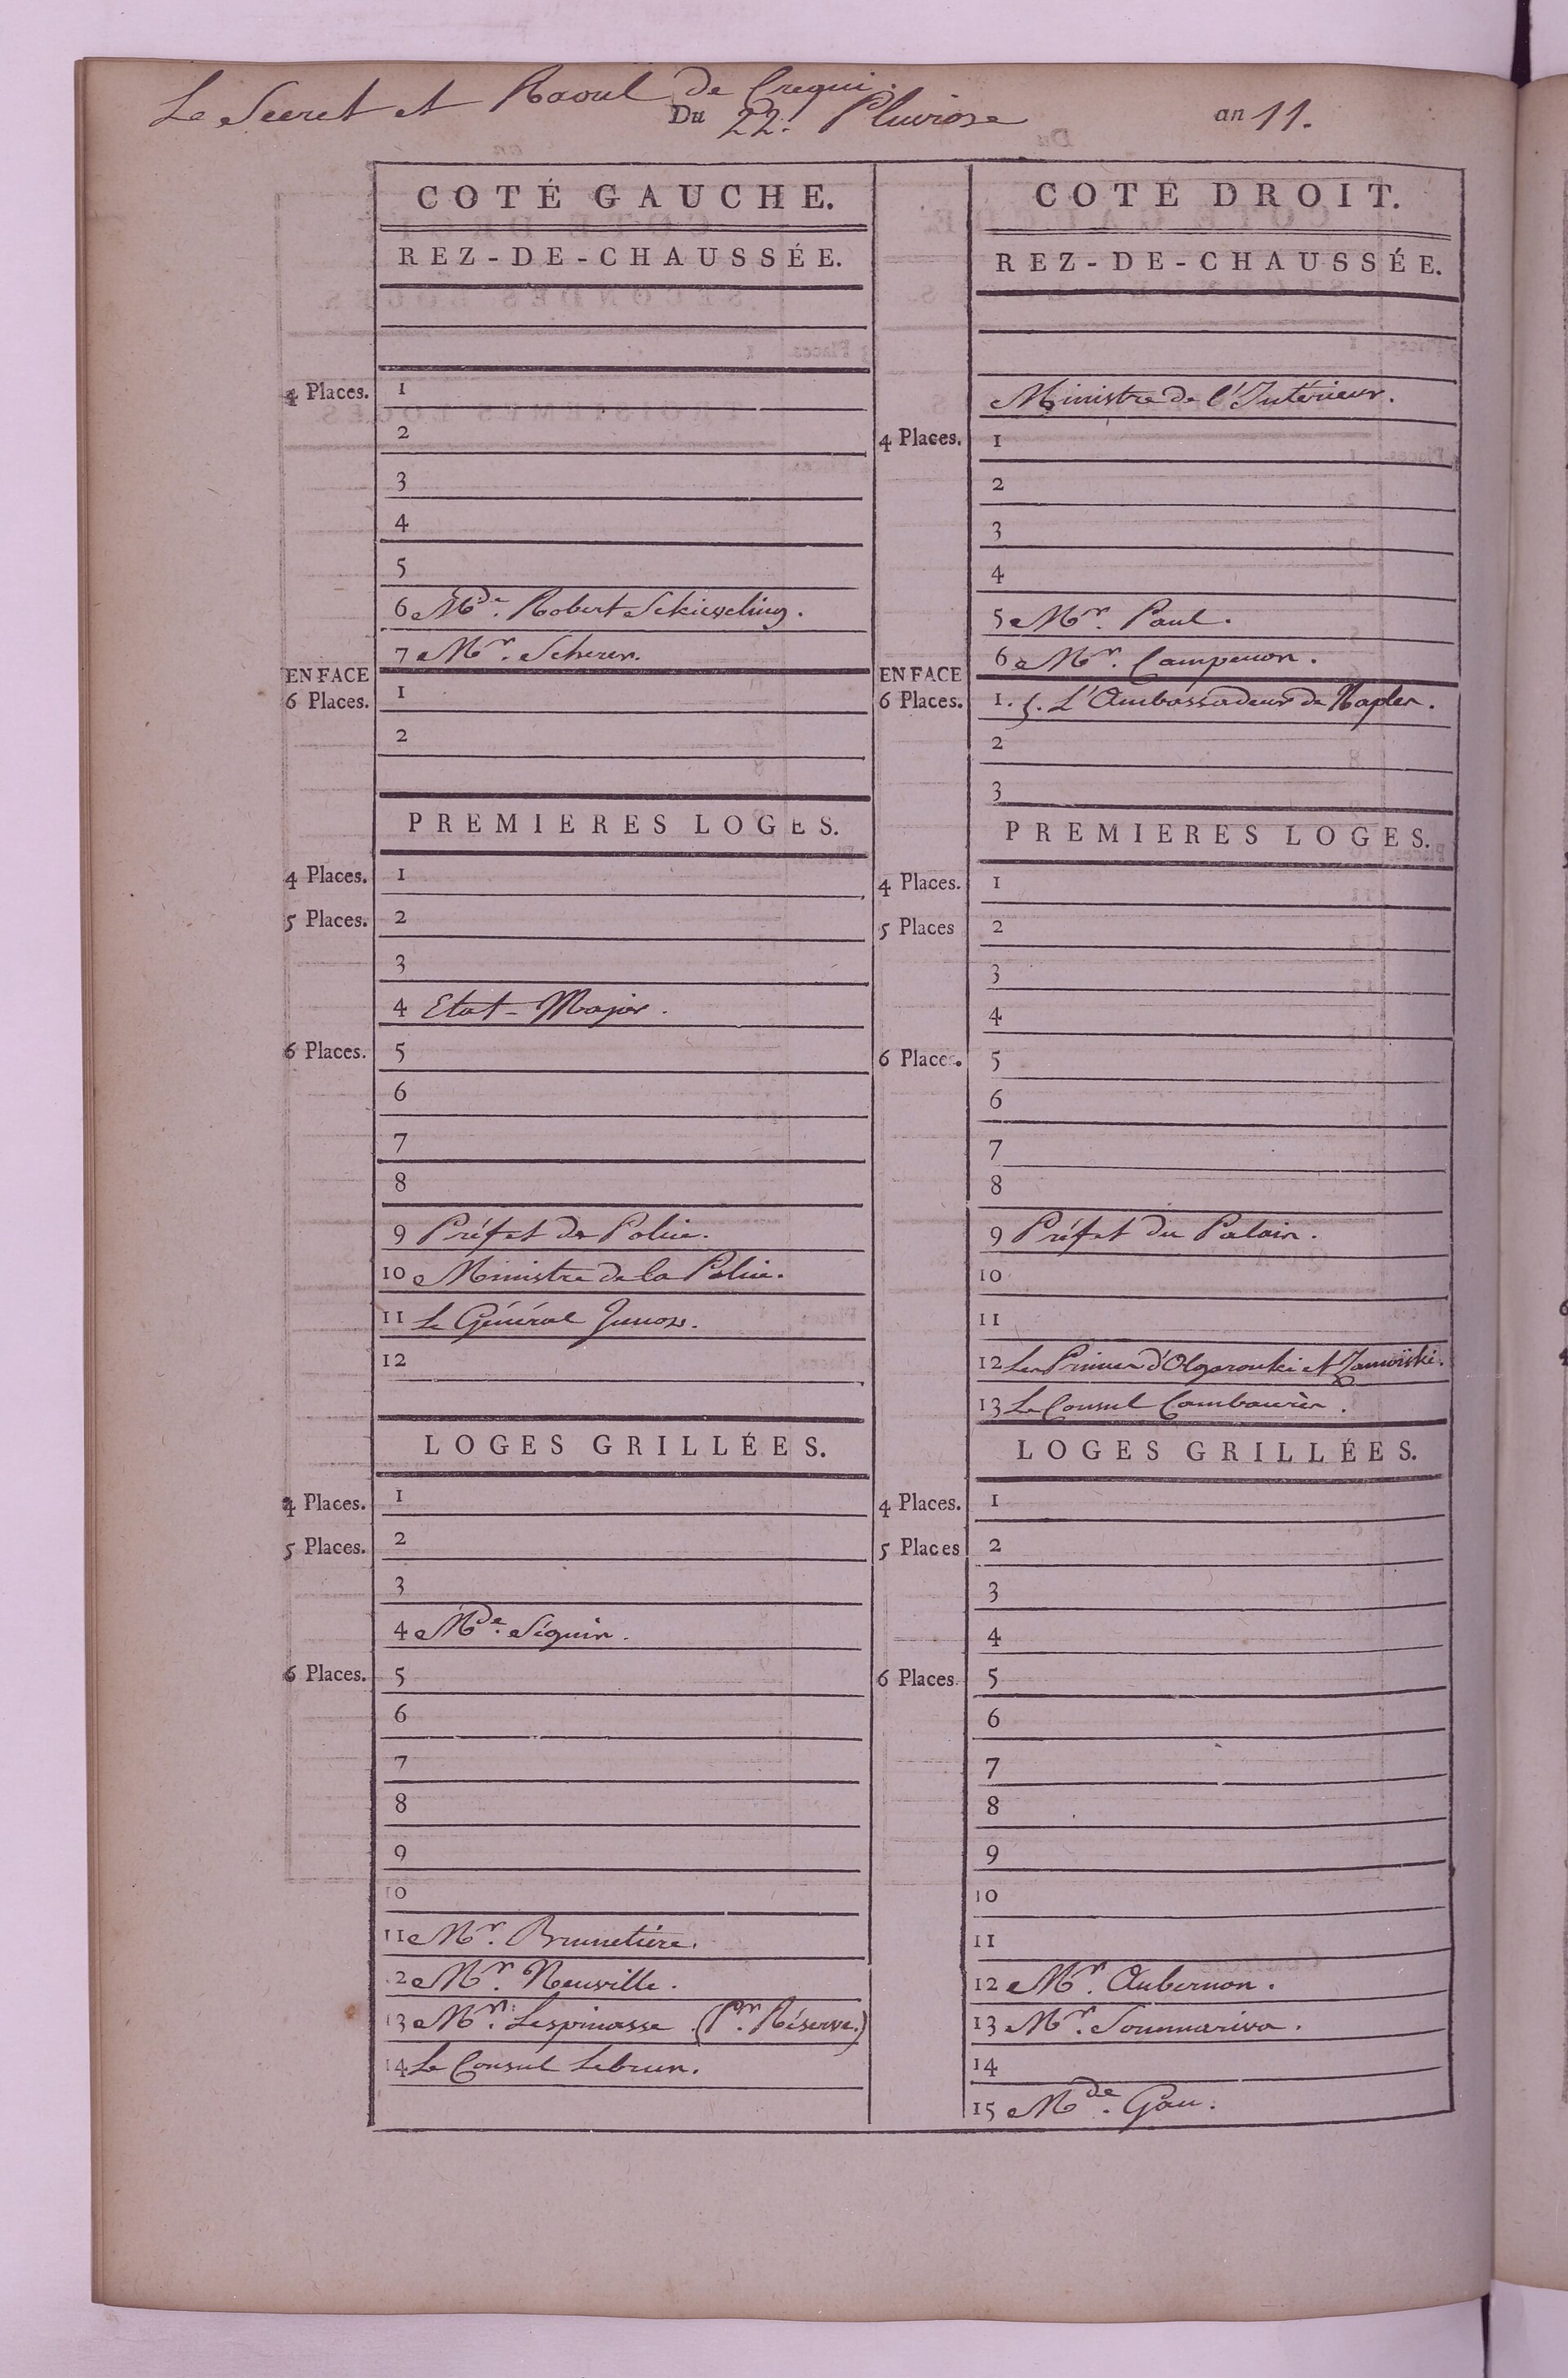 Le Secret et Raoul de Crequi.
Du 22. Pluviose an 11.
COTÉ GAUCHE.
REZ-DE-CHAUSSÉE.
4 Places. 1
2
3
4
5
6 Mde. Robert
7 Mr. Scherer.
EN FACE
6 Places. 1
2
PREMIERES LOGES.
4 Places. 1
5 Places. 2
3
4 Etat-Major.
6 Places. 5
6
7
8
9 Préfet de Police.
10 Ministre de la Police.
11 Le Général Junot.
12
LOGES GRILLÉES.
4 Places. 1
5 Places. 2
3
4 Mde. Séguin.
6 Places. 5
6
7
8
9
10
11 Mr. Brunetière.
12 Mr. Neuville.
13 Mr. Lespinasse (Pr. Réserve.)
14 Le Consul Lebrun.
COTÉ DROIT.
REZ-DE-CHAUSSÉE.
Ministre de l'Intérieur.
4 Places. 1
2
3
4
5 Mr. Paul.
6 Mr. Campenon.
EN FACE
6 Places. 1. L'Ambassadeur de Naples.
2
3
PREMIERES LOGES.
4 Places. 1
5 Places 2
3
4
6 Places. 5
6
7
8
9 Préfet du Palais.
10
11
12 Les Princes et Zamoiski.
13 Le Consul Cambacérès.
LOGES GRILLÉES.
4 Places. 1
5 Places 2
3
4
6 Places. 5
6
7
8
9
10
11
12 Mr. Aubernon.
13 Mr. Sommariva.
14
15 Mde. Gau.